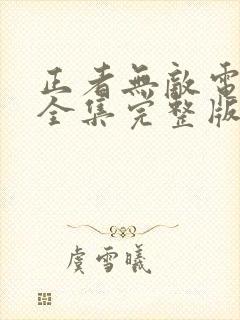 正者無敵電
全集完整版
虞雪曦